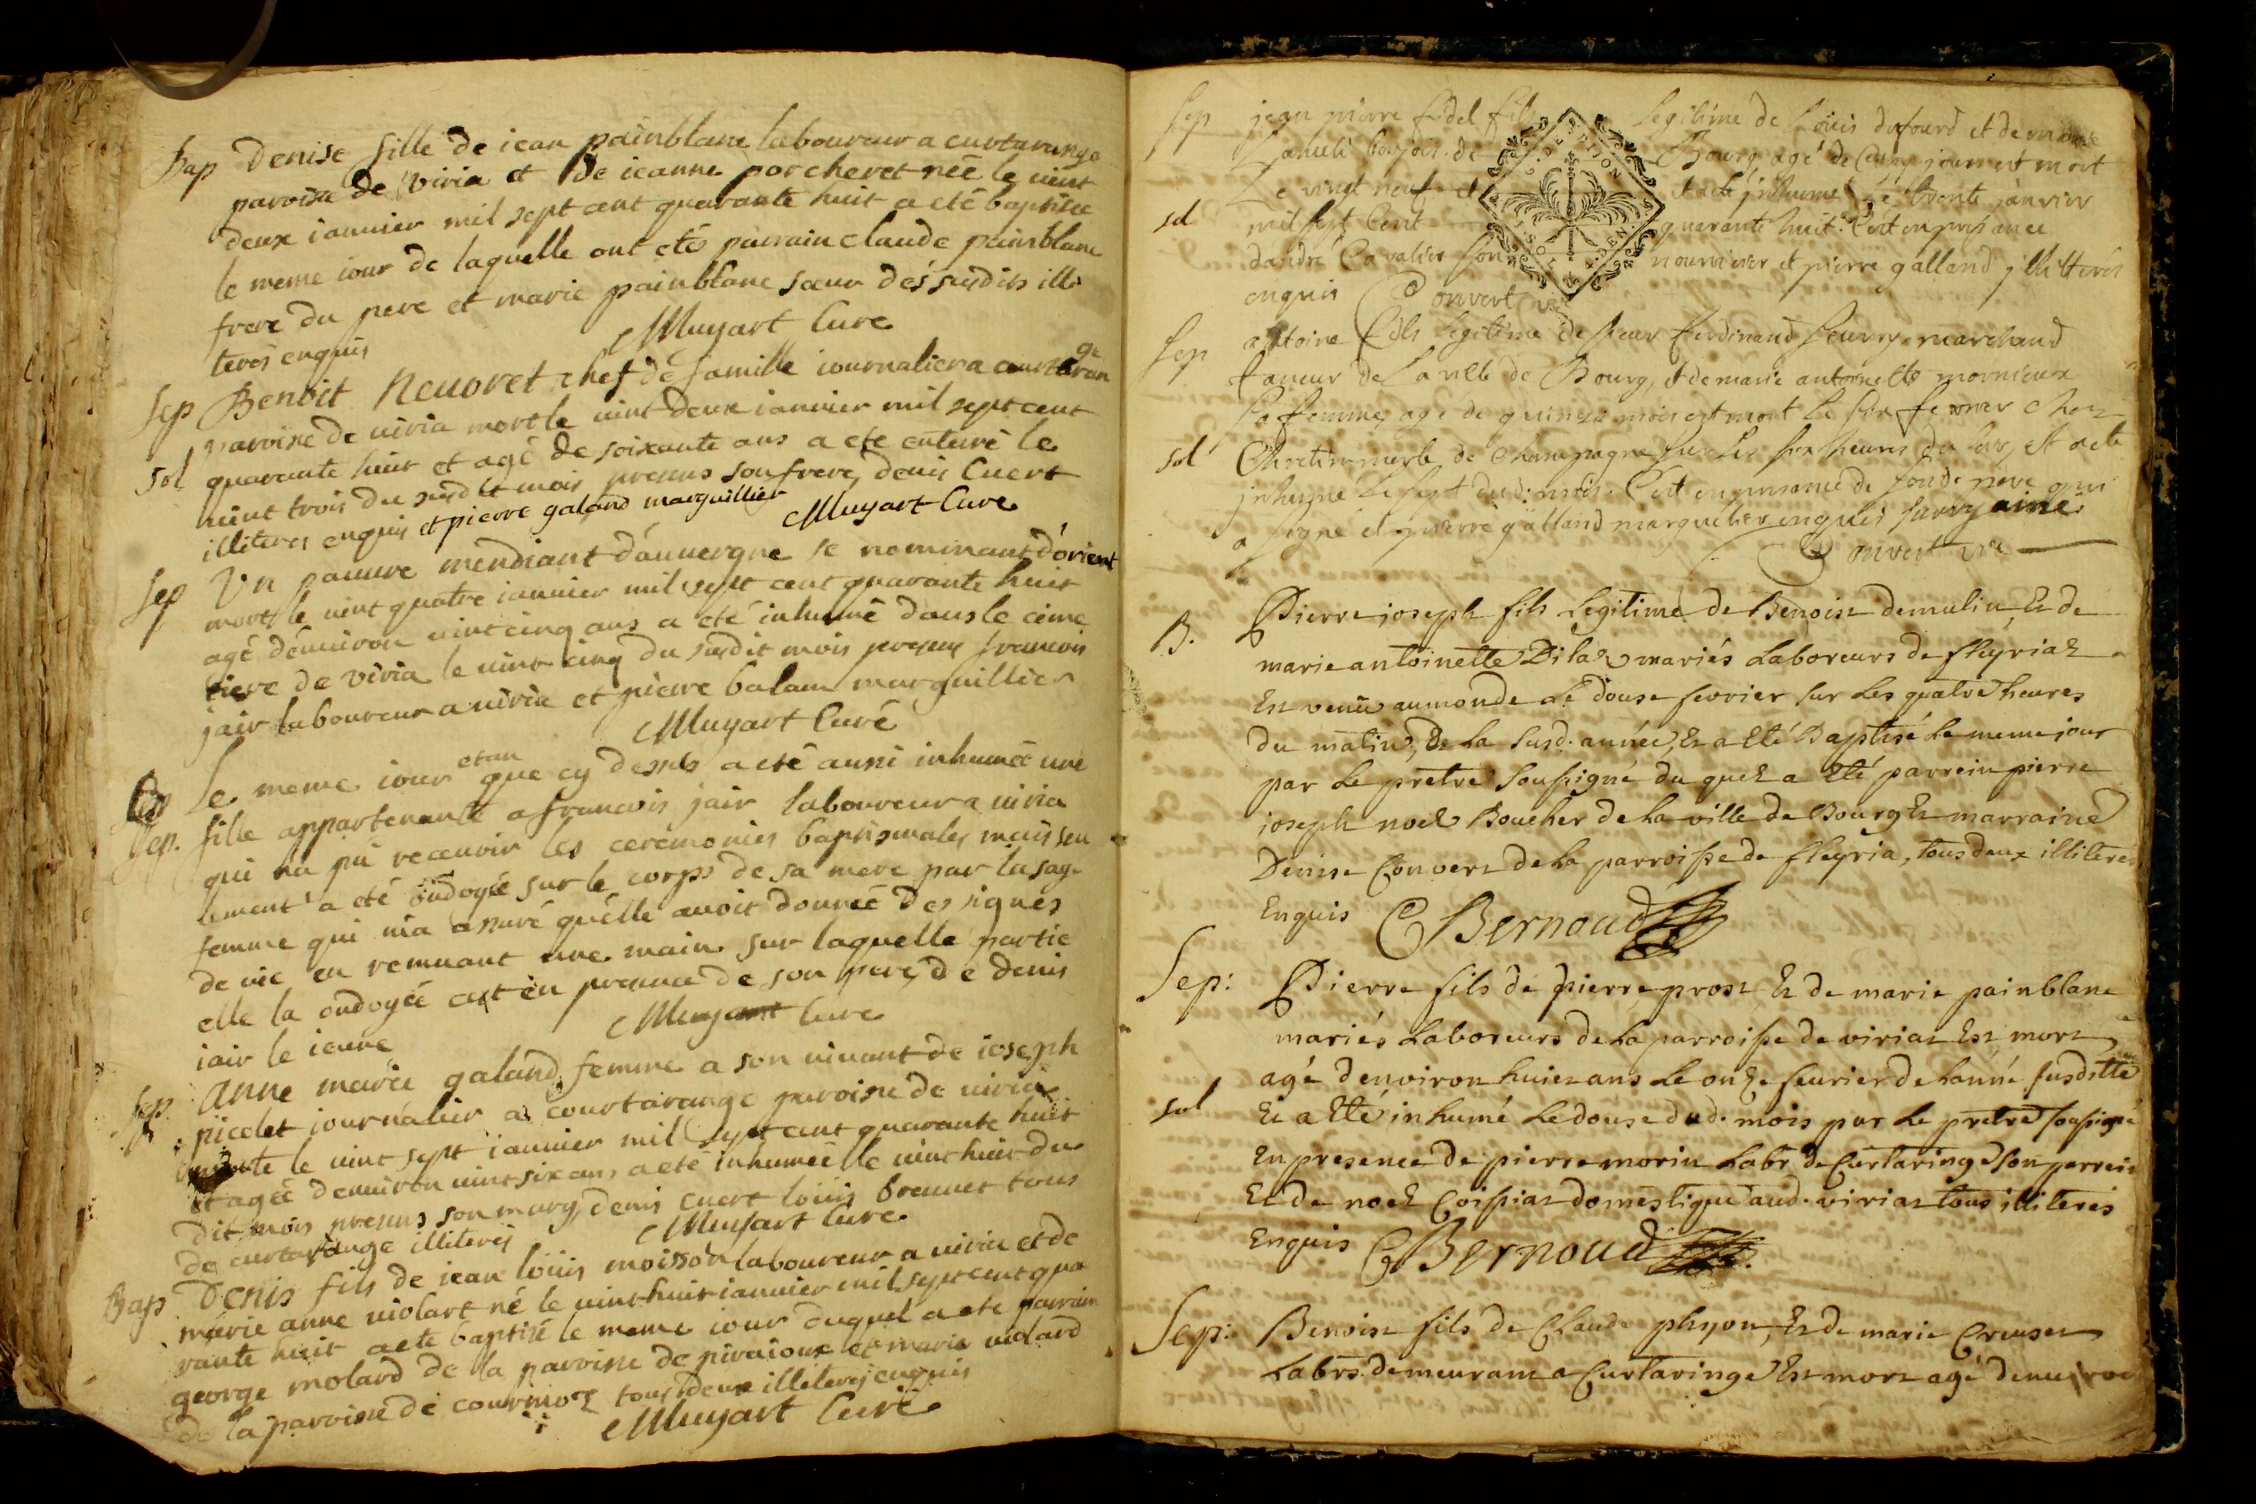 Bap Denise fille de jean painblanc laboureur a curtarange
paroisse de viria et de jeanne porcheret née le vint
deux ianvier mil sept cent quarante huit a eté baptisée
le meme iour de laquelle ont etés parrain claude painblanc
frere du pere et marie painblanc sœur des susdits illi
teres enquis
Muyart Curé
Sep Benoit Neuoret chef de famille iournalier a courtaran
ge
paroisse de viria mort le vint deux ianvier mil sept cent
sol quarante huit et agé de soixante ans a ete enterré le
vint trois du susdit mois presens son frere, denis Cuert
illiteres enquis et pierre galand marguillier
Muyart Cure
Sep Un pauvre mendiant d'auvergne se nommant d'orient
mort le vint quatre ianvier mil sept cent quarante huit
agé d'environ vint cinq ans a eté inhumé dans le cime
tiere de viria le vint cinq du susdit mois presens francois
jair laboureur a viria et pierre balam marguillier
Muyart Curé
Le meme iour et an que cy dessus a eté aussi inhumée une
Sep. fille appartenante a francois jair laboureur a viria
qui na pu recevoir les ceremonies baptismales mais seu
lement a eté ondoyée sur le corps de sa mere par la sage
femme qui m'a assuré qu'elle avoit donnée des signes
de vie en remuant une main sur laquelle partie
elle la ondoyée c'est en presence de son pere, de denis
jair le jeune
Muyart Cure
Sep. Anne marie galand femme a son vivant de joseph
picolet iournalier a courtarange paroisse de viria
morte le vint sept ianvier mil sept cent quarante huit
et agée d'environ vint six ans a eté inhumée le vint huit du
dit mois presens son mary, denis cuert louis brevet tous
de curtarange illiteres
Muyart Cure
Bap Denis fils de jean louis moisson laboureur a viria et de
marie anne violart né le vint huit ianvier mil sept cent qua
rante huit a eté baptisé le meme iour duquel a ete parrain
george molard de la paroisse de pirajoux et marie violard
de la paroisse de courmoz tous deux illiteres enquis
Muyart Curé
Sep jean pierre fidel fils legitime de Loüis dufourd et de marie
bourg agé de Cinq jours est mort
Le vingt neuf et a eté inhumé Le trente janvier
sol mil sept Cent quarante huit. C'est en presence
dandré Cavalier son nourricier et pierre galland illitterés
enquis Convert
Sep antoine fils legitime de sieur ferdinand marchand
taneur de La ville de Bourg, et de marie antoinette mornieux
sa femme, agé de quinze mois est mort le six fevrier chez
sol de champagne sur les six heures du soir, et a eté
inhumé Le sept dud: mois. C'est en presence de son d: pere qui
a signé et pierre galland marguelier enquis ainé
Convert
B. Pierre joseph fils Legitime de Benoist demulin, Et de
marie antoinette Dilas mariés Laboreurs de fleyriat
Est venü au monde Le douse fevrier sur Les quatre heures
du matin, De La susd. année, Et a Eté Baptisé Le meme jour
par Le prêtre soussigné du quel a Eté parrein pierre
joseph noel Boucher de La ville de Bourg Et marraine
Denise Convert de La parroisse de fleyria, tous deux illiteres
Enquis C Bernoud
Sep: Pierre fils de pierre prost Et de marie painblanc
mariés Laboreurs de La parroisse de viriat Est mort
agé d'environ huict ans Le onze feurier de Lanné susditte
sol Et a Eté inhumé Le douse dud. mois par Le prêtre soussigné
En presence de pierre morin Labr. de Curtaringe son parrein
Et de noel Coispiat domestique aud. viriat tous illiteres
Enquis C Bernoud
Sep: Benoist fils de Claude phyon, Et de marie Creuset
Labrs. demeurant a Curtaringe Est mort agé d'environ